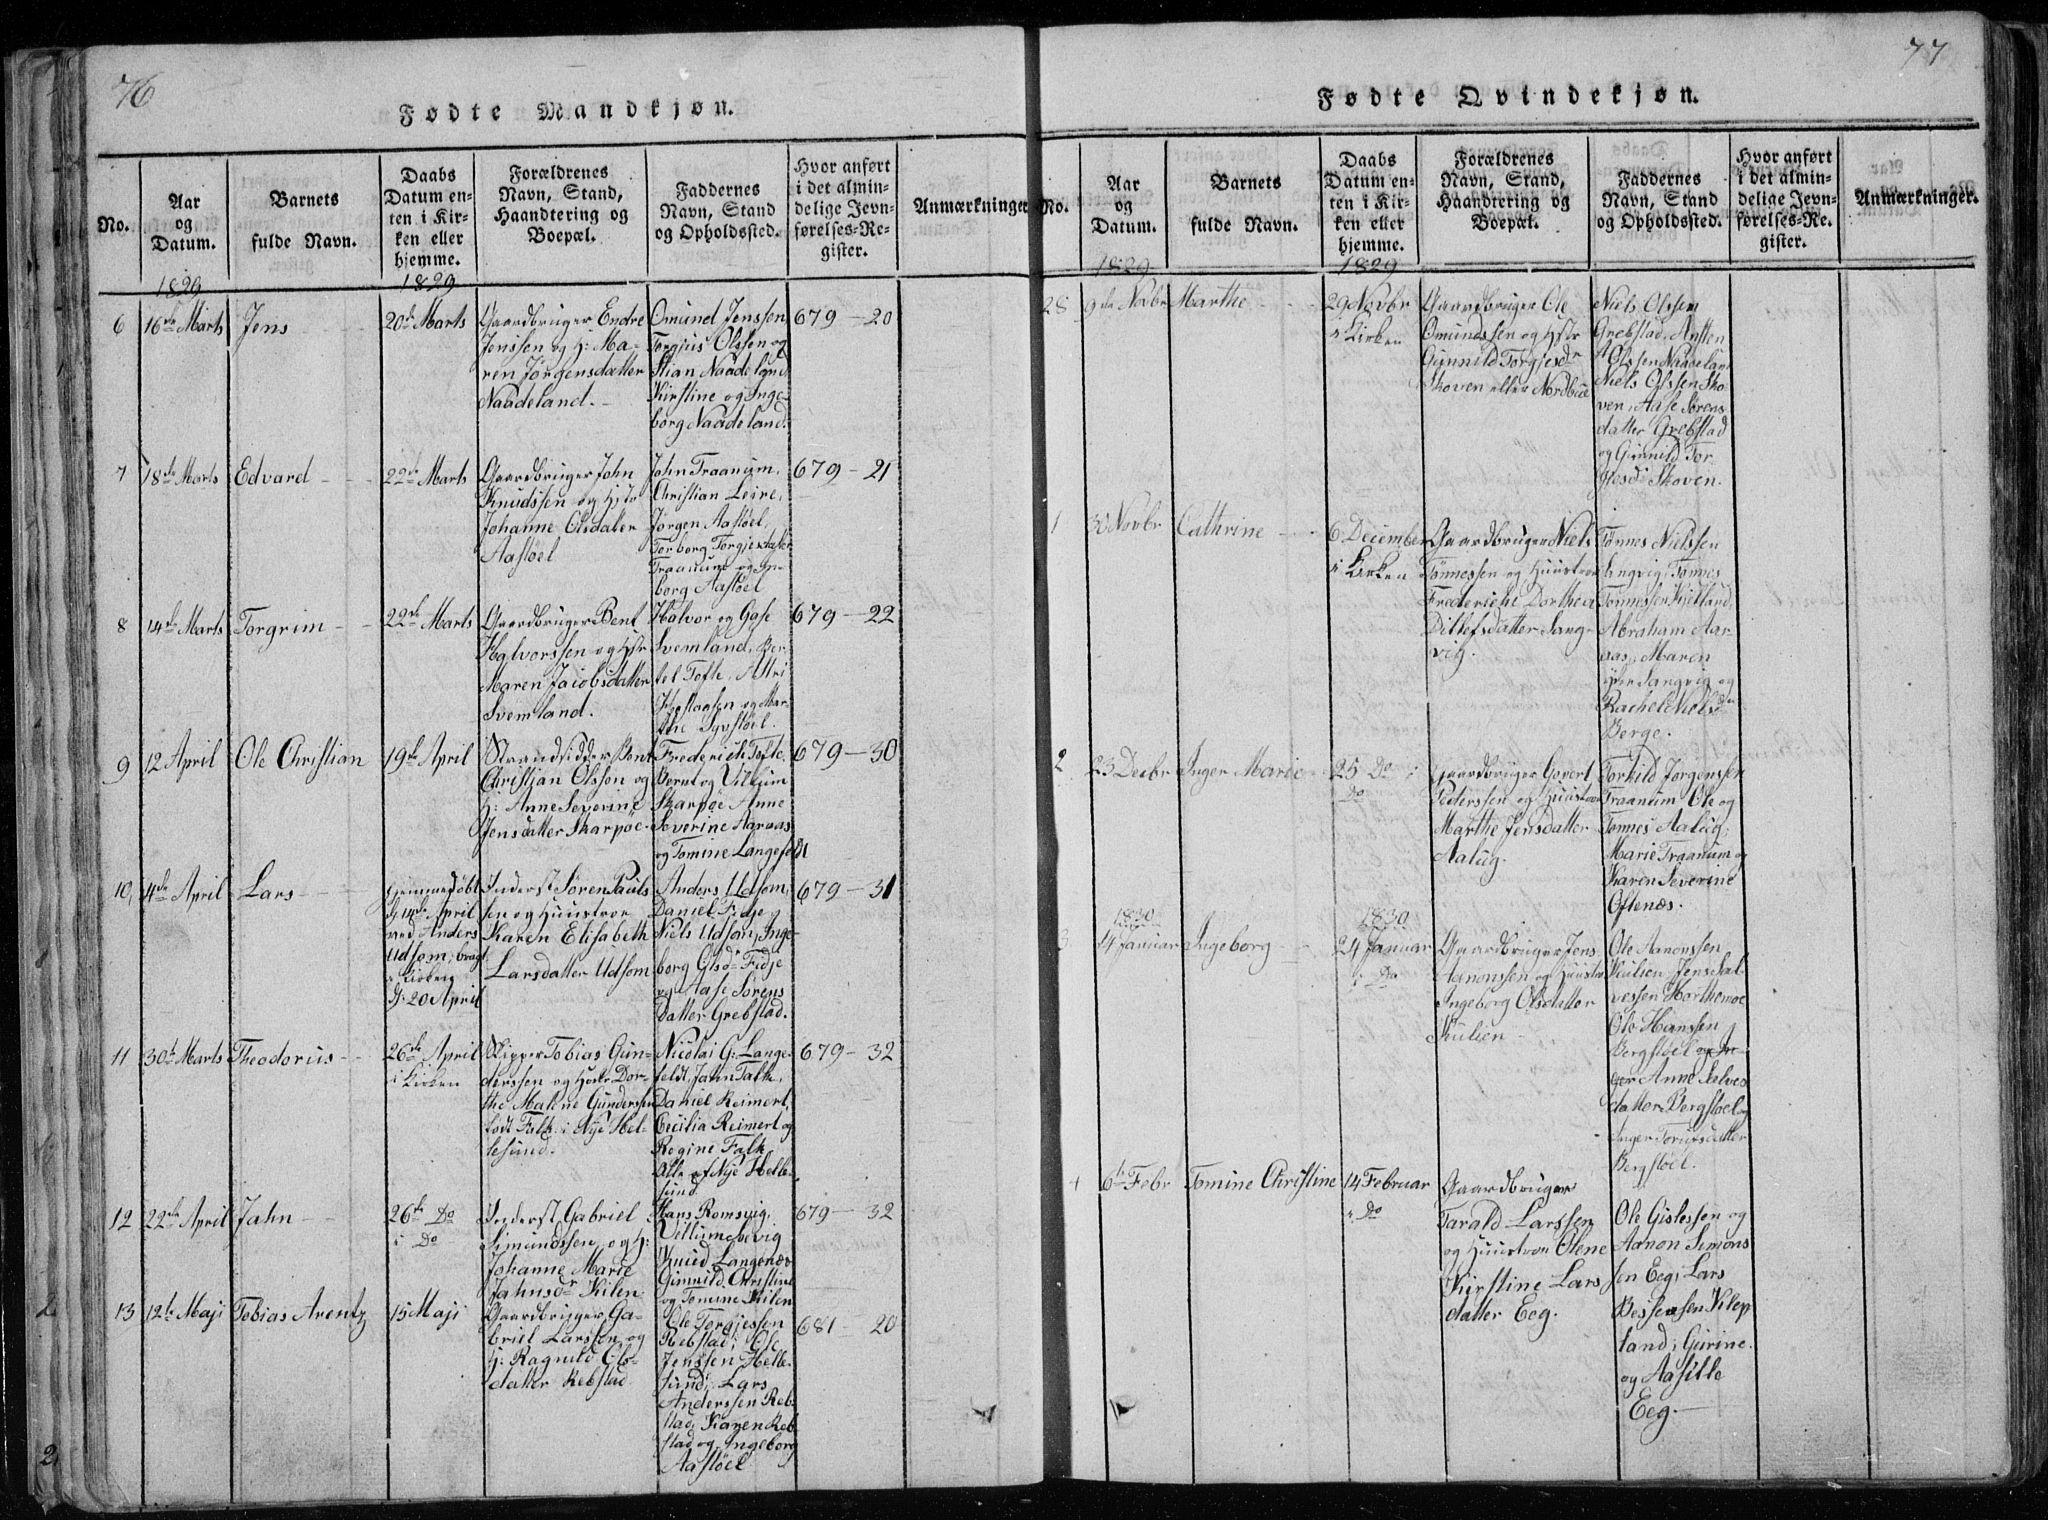 76
Fødte Mandkjøn.
No.
Aar
og
Datum.
Barnets
fulde Navn.
Daabs
Datum en-
ten i Kir-
ken eller
hjemme.
Forældrenes
Navn, Stand,
Haandtering og
Boepæl.
Faddernes
Navn, Stand
og Opholdssted.
Hvor anført
i det almin-
delige Jevn-
førelses-Re-
gister.
Anmærkninger
1829
1829
6
16de Marts
Jens
20de Marts
Gaardbruger Endre
Jenssen og H: Ma-
ren Jørgensdatter
Naadeland.
Omund Jenssen,
Torgius Olssen og
Stian Naadeland
Kirstine og Inge-
borg Naadeland.
679 - 20
7
18de Marts
Edvard
22de Marts
Gaardbruger John
Knudssen og Hstr
Johanne Olsdater
Aastøel
John Traanum,
Christian Leire,
Jørgen Aastøel,
Torborg Torgjesdatter
Traanum og In-
borg Aastøel
679 - 21
8
14de Marts
Torgrim
22de Marts
Gaardbruger Bent
Halvorssen og Hstr
Maren Jacobsdatter
Svemland.
Halvor og Gase
Svemland, Ber-
tel Tofte,
og Mar-
the Syvstøel.
679 - 22
9
12 April
Ole Christian
19de April
Strandsidder Bent
Christian Olssen og
H: Anne Severine
Jensdatter Skarpøe.
Frederich Tofte
Bernt og Villum
Skarpøe Anne
Severine Aaraas
og Tomine Langefeldt
679 - 30
10,
4de April
Lars
hjemmedøbt
d: 14de April
ved Anders
Udsom, bragt
i Kirken
d: 20 April
Inderst Søren Pauls
sen og Huustroe
Karen Elisabeth
Larsdatter Udsom
Anders Udsom,
Daniel Fidje,
Niels Udsom, Inge-
borg Olsdr Fidje
og Aase Sørens
Datter Grebstad.
679 - 31
11
30te Marts
Theodorius
26de April
i Kirken
Skipper Tobias Gun-
derssen og Hstr Dor-
the Malene Gunderssen
født Falk i Nye Hel-
lesund.
Nicolai G: Lange-
feldt, Jahn Falk,
Daniel Reimert,
Cecilia Reimert og
Regine Falk
alle af Nye Helle-
sund
679 - 32
12
22de April
Jahn
26de Do
i Do
Inderst Gabriel
Simundssen og H:
Johanne Marie
Jahnsdr Kilen
Hans Romsvig,
Villum
Knud Langenæs
Gunnild Christine
og Tomine Kilen
679 - 32
13
12te Maji
Tobias Arentz
15 Maji
Gaardbruger Ga-
briel Larssen og
H: Ragnild Ols-
datter Rebstad
Ole Torgjessen
Rebstad, Ole
Jenssen Helle-
sund, Lars
Anderssen Reb-
stad, Karen Reb
stad og Ingeborg
Aastøel
681 - 20
77
Fødte Qvindekjøn.
No.
Aar
og
Datum.
Barnets
fulde Navn.
Daabs
Datum en-
ten i Kir-
ken eller
hjemme.
Forældrenes
Navn, Stand,
Haandtering og
Boepæl.
Faddernes
Navn, Stand
og Opholdssted.
Hvor anført
i det almin-
delige Jevn-
førelses-Re-
gister.
Anmærkninger.
1829
1829
28
9de Novbr
Marthe
29 Novbr
i Kirken
Gaardbruger Ole
Omundssen og Hstr
Gunnild Torgjesdr
Skoven eller Nordbøe
Niels Olssen
Grebstad, Ansten
Olssen Naadeland
Niels Olssen Sko-
ven, Aase Sørens
datter Grebstad
og Gunnild Tor
gjesdr Skoven.
1
30 Novbr
Cathrine
6 December
i Kirken
Gaardbruger Niels
Tønnessen og Huustroe
Frederiche Dorthea
Ditlefsdatter Sang-
vig.
Tønnes Nielssen
Tønnes
Tønnessen Kjetland,
Abraham Aar-
aas, Maren
Sangvig og
Rachel Nielsdr
Berge.
2
23 Decbr
Inger Marie
25 Do i
Do
Gaardbruger Govert
Pederssen og Huustroe
Marthe Jensdatter
Aalug.
Torkild Jørgenssen
Traanum Ole og
Tønnes Aalug,
Marie Traanum og
Karen Severine
Oftenæs.
1830
1830
3
14 Januar
Ingeborg
24 Januar
i Do
Gaardbruger Jens
Aanonssen og Huustroe
Ingeborg Olsdatter
Kulien
Ole Aanonssen
Kulien Jens Sal-
vessen Horthemoe
Ole Hanssen
Bergstøel og In-
ger Anne Salves
datter Bergstøel og
Inger Torufsdatter
Bergstøel.
4
6te Febr
Tomine Christine
14 Februar
i Do
Gaardbruger
Tarald Larssen
og Huustroe Olene
Kirstine Lars
datter Eeg.
Ole Gislessen og
Aanon Simons
sen Eeg, Lars
Bessessen Klep
land, Gurine
og Aasille
Eeg.
2
2